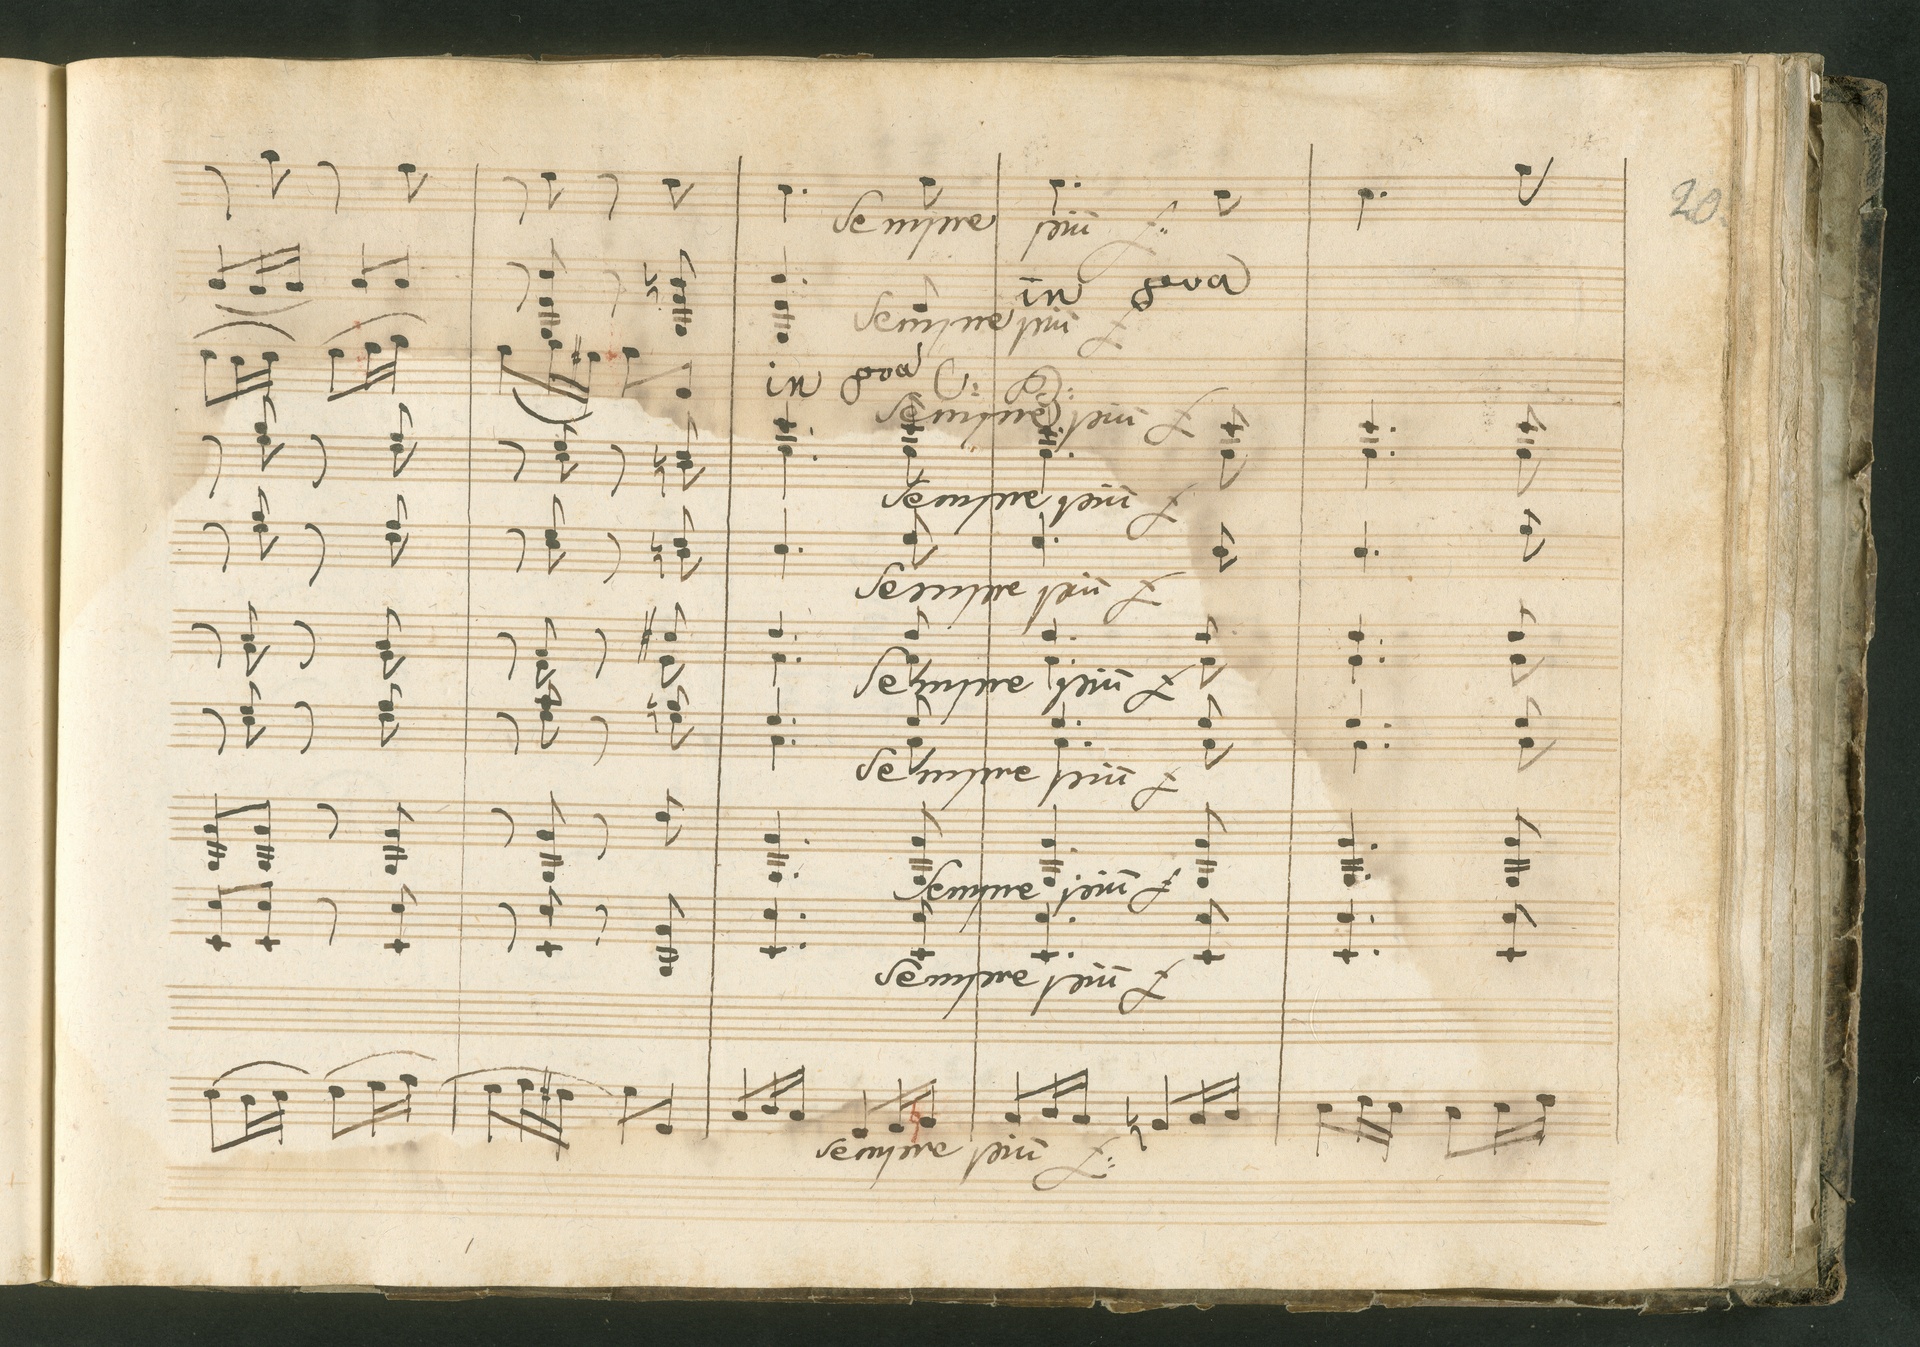 20.
Sempre piu f:
in 8ava
Sempre piu f
in 8va
Sempre piu f
Sempre piu f
Sempre piu f
Sempre piu f
Sempre piu f
Sempre piu f
Sempre piu f
sempre piu f: